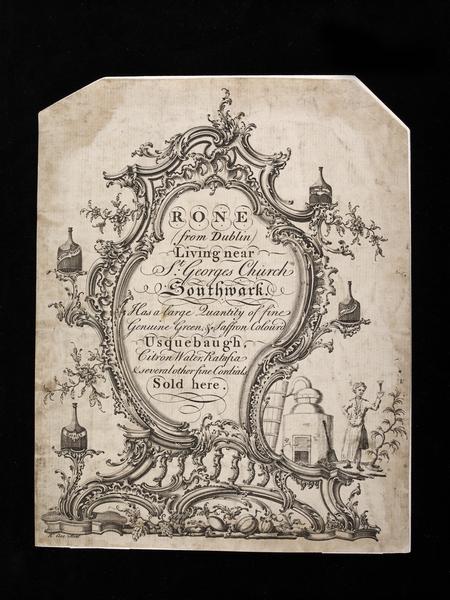 RONE
(from Dublin)
Living near
St. Georges Church
Southwark.
Has a large Quantity of fine
Genuine Green, & Saffron Colour'd
Usquebaugh,
Citron Water, Ratafia
& several other fine Cordials
Sold here.